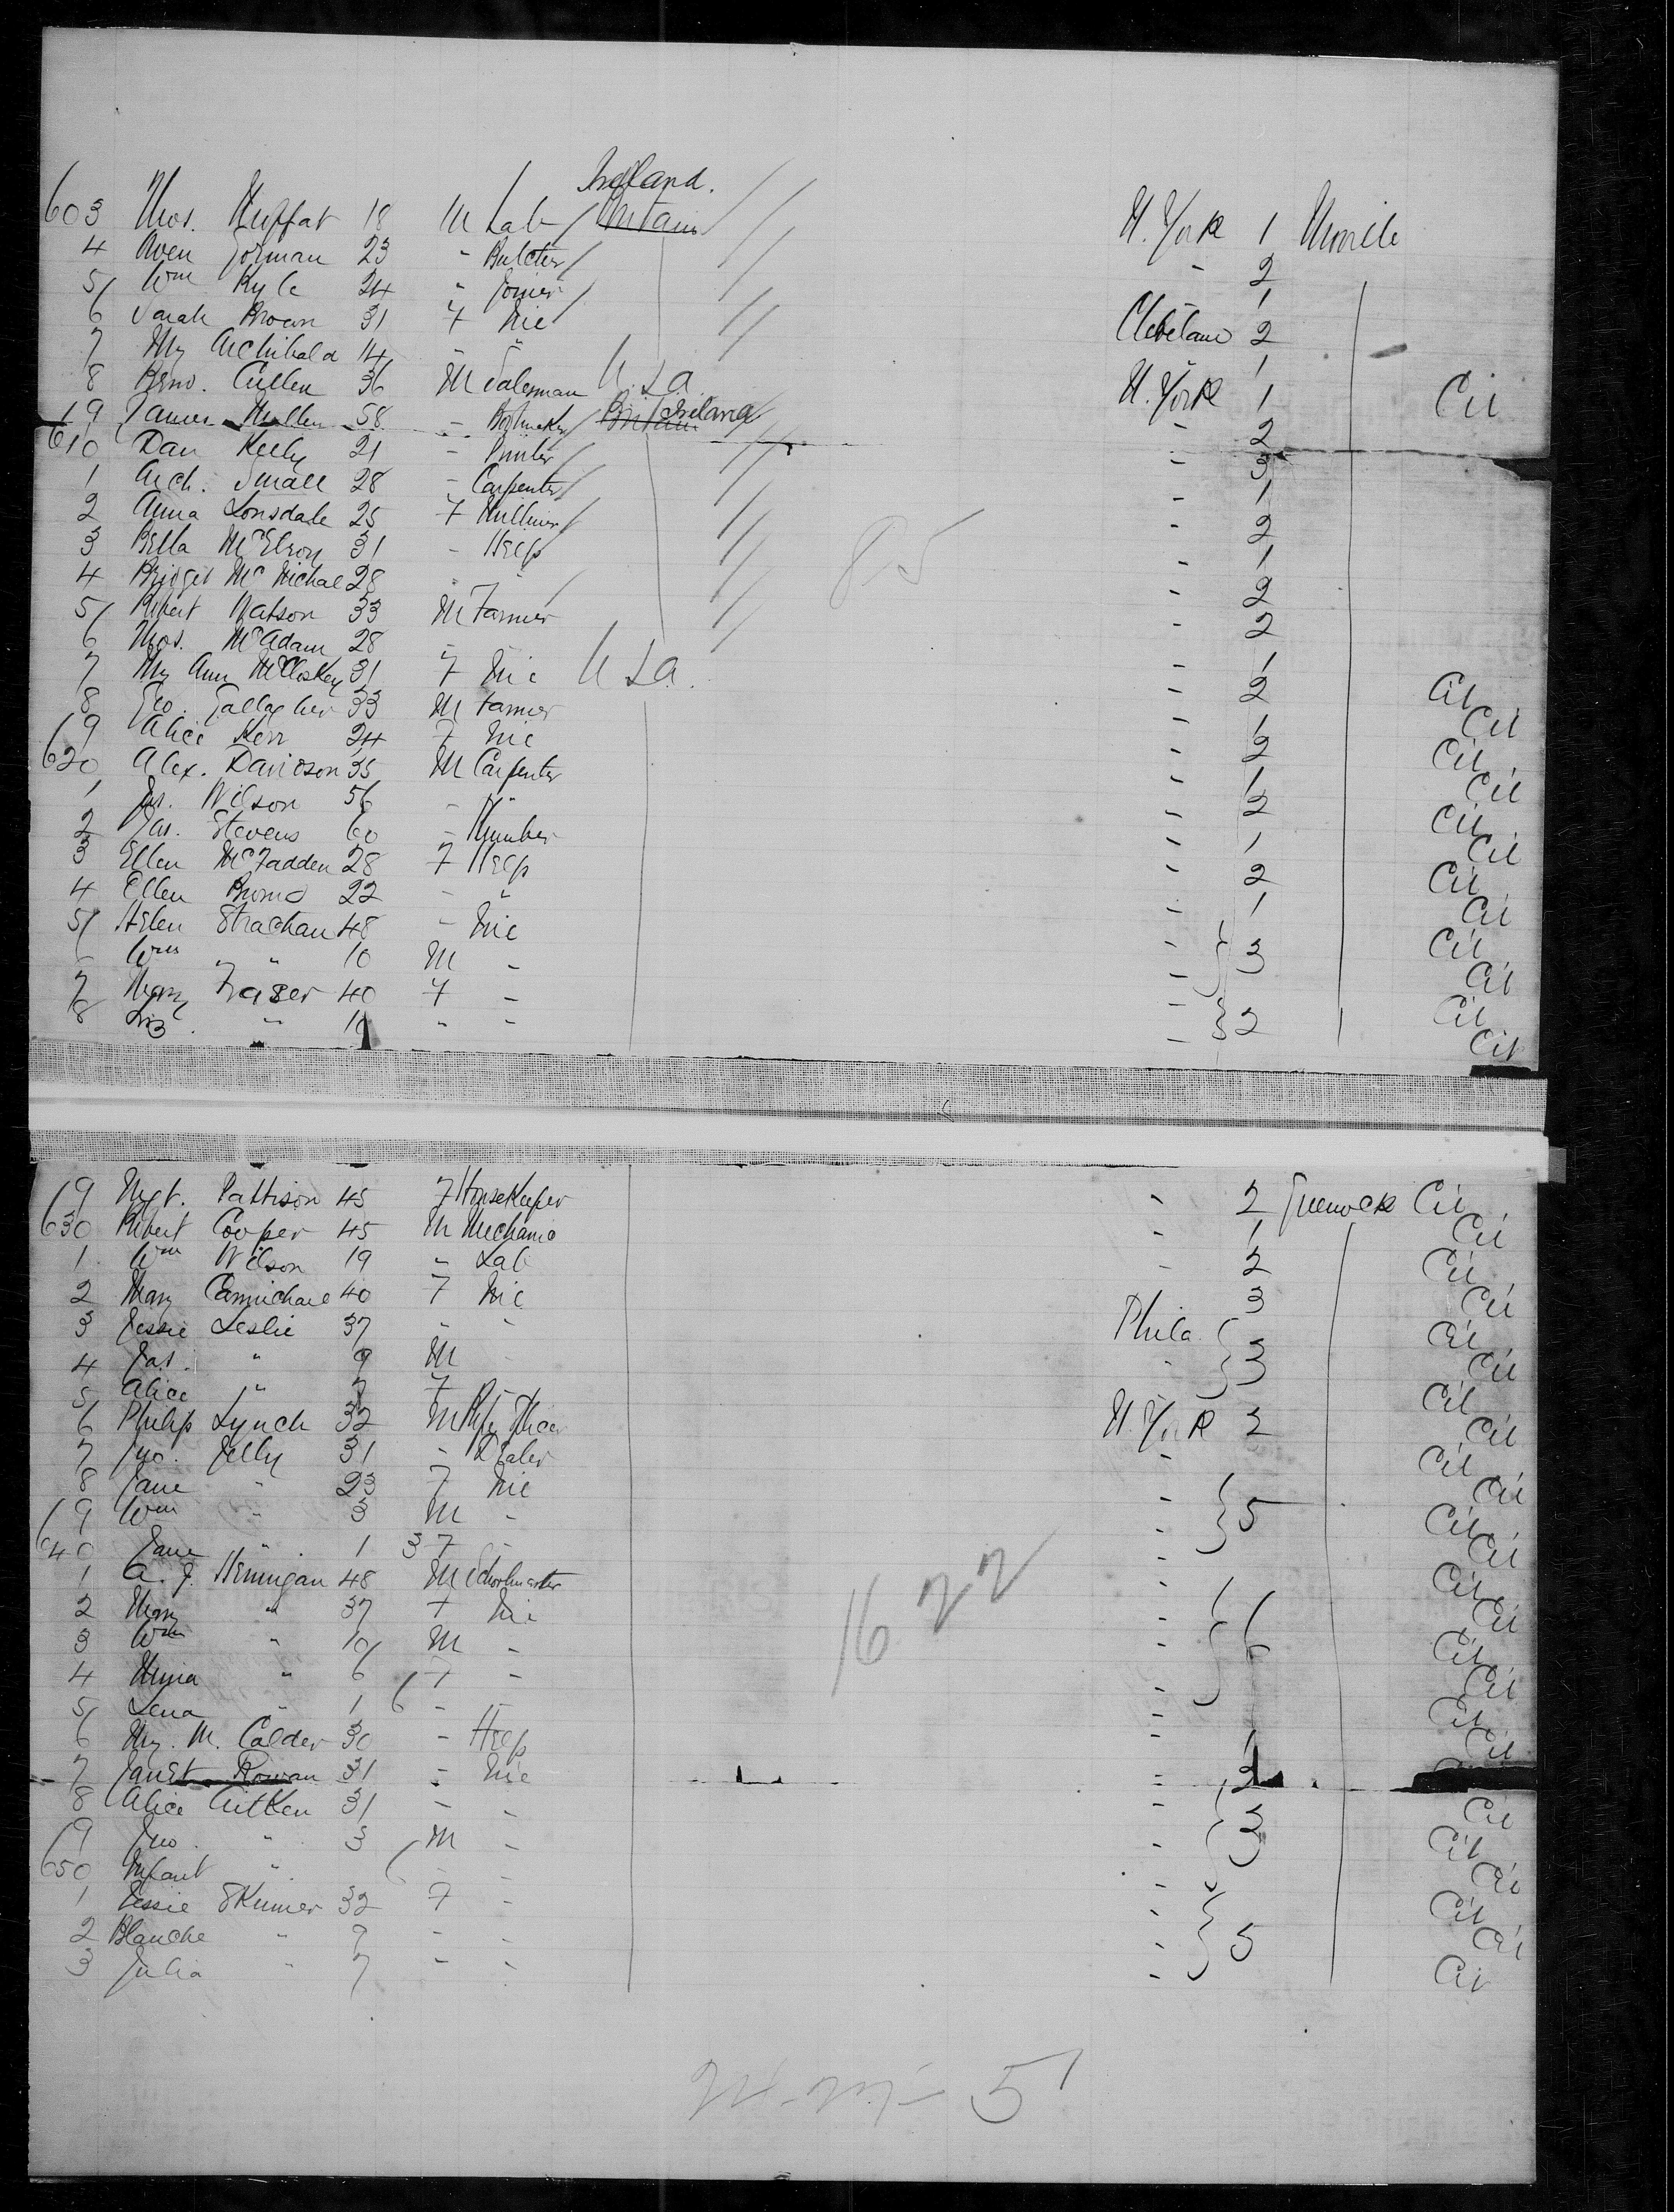 Ireland.
603 Thos. Moffat 18 M Lab / Britain // N. York 1 Moville
4 Owen Gorman 23 " Butcher / // - 2
5 Wm Kyle 24 " Joiner / // - 1
6 Sarah Brown 31 F Nil / // Cleveland 2
7 My Archibald 14 - " " 1
8 Bern. Cullen 36 M Salesman U.S.A. N. York 1 Cit
9 James Mullen 58 - Britain Ireland // - 2
610 Dan Kelly 21 - Printer / // - 3
1 Arch. Small 28 - Carpenter / // - 1
2 Anna Lonsdale 25 F Milliner / // - 2
3 Bella McElroy 31 - Help // - 1
4 Bridget McMichael 28 - " / // - 2
5 Robert Watson 33 M Farmer // - 2
6 Thos. McAdam 28 - - // - 1
7 My Ann McCloskey 31 F Nil U.S.A. - 2 Cit
8 Geo. Gallagher 33 M Farmer - 1 Cit
9 Alice Kerr 24 F Nil - 2 Cit
620 Alex. Davidson 35 M Carpenter - 1 Cit
1 Jas. Wilson 56 - " - 2 Cit
2 Jas. Stevens 60 - Plumber - 1 Cit
3 Ellen McFadden 28 F Help - 2 Cit
4 Ellen 22 - " - 1 Cit
5 Helen Strachan 48 - Nil - 3 Cit
6 Wm " 10 M - - Cit
7 Mary Fraser 40 F - - 2 Cit
8 Liz. " - - - Cit
9 Mgt. Pattison 45 F Housekeeper - 2 Greenock Cit
630 Robert Cooper 45 M Mechanic - 1 Cit
1 Wm Wilson 19 " Lab - 2 Cit
2 Mary Carmichael 40 F Nil 3 Cit
3 Jessie Leslie 37 " " Phila 3 Cit
4 Jas. " 9 M - " Cit
5 Alice " 7 F - Cit
6 Philip Lynch 32 M N. York 2 Cit
7 Jno. Jelly 31 - Dealer - 5 Cit
8 Jane " 23 F Nil - Cit
9 Wm " 3 M - - Cit
640 Jane " 1 3 F - - Cit
1 A. J. Hennigan 48 M Schoolmaster - 6 Cit
2 Mary " 37 F Nil - Cit
3 Wm " 10 M - - Cit
4 Mina " 6 F - - Cit
5 Lena " 1 6 - - - Cit
6 My. M. Calder 30 - Help - 1 Cit
7 Janet Rowan 31 - Nil - 2
8 Alice Aitken 31 - - - 3 Cit
9 Jno. " 3 M - - Cit
650 Infant " 6 - - - Cit
1 Jessie Skinner 32 F - - 5 Cit
2 Blanche " 9 - - - Cit
3 Julia " 7 - - - Cit
85
1622